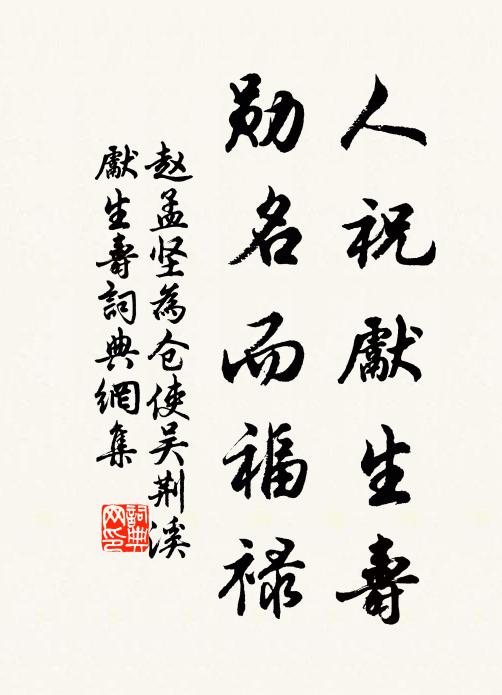 人祝獻生壽
勋名而福禄
赵孟坚為仓使吴荆溪
獻生壽詞典網集
詞典
网印